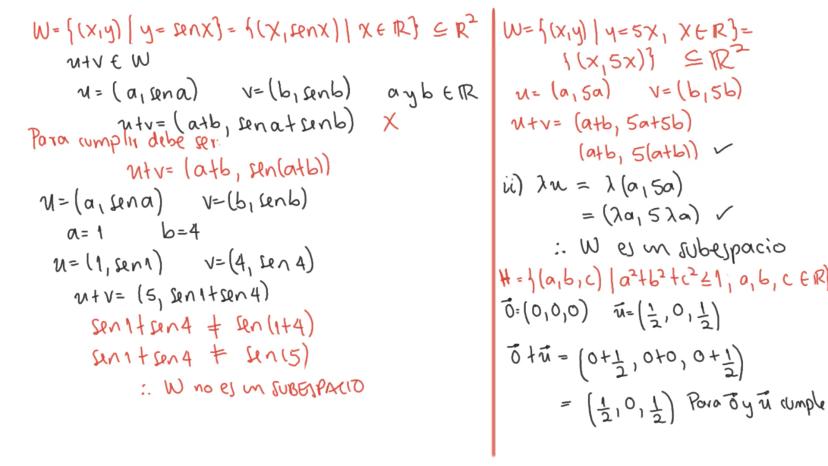 W={(x,y) | y=senx} = {(x,senx) | x∈ℝ} ⊆ℝ²
u+v ∈ W
u=(a,sena) v=(b,senb) a y b ∈ ℝ
u+v=(a+b, sena+senb) X
Para cumplir debe ser:
u+v=(a+b, sen(a+b))
u=(a,sena) v=(b,senb)
a=1 b=4
u=(1,sen1) v=(4,sen4)
u+v=(5,sen1+sen4)
sen1+sen4 ≠ sen(1+4)
sen1+sen4 ≠ sen(5)
∴ W no es un SUBESPACIO
W={(x,y) | y=5x, x∈ℝ}=
{(x,5x)} ⊆ℝ²
u=(a,5a) v=(b,5b)
u+v=(a+b, 5a+5b)
(a+b, 5(a+b)) ✓
ii) λu = λ(a,5a)
= (λa,5λa) ✓
∴ W es un subespacio
H={(a,b,c) | a²+b²+c²≤1, a,b,c ∈ℝ}
0⃗=(0,0,0) u⃗=(1/2,0,1/2)
0⃗+u⃗=(0+1/2,0+0,0+1/2)
=(1/2,0,1/2) Para 0⃗ y u⃗ cumple